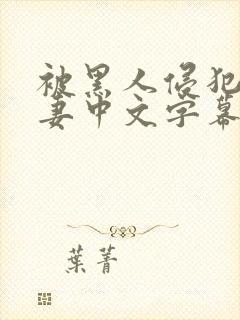 被黑人侵犯
妻中文字幕
葉菁